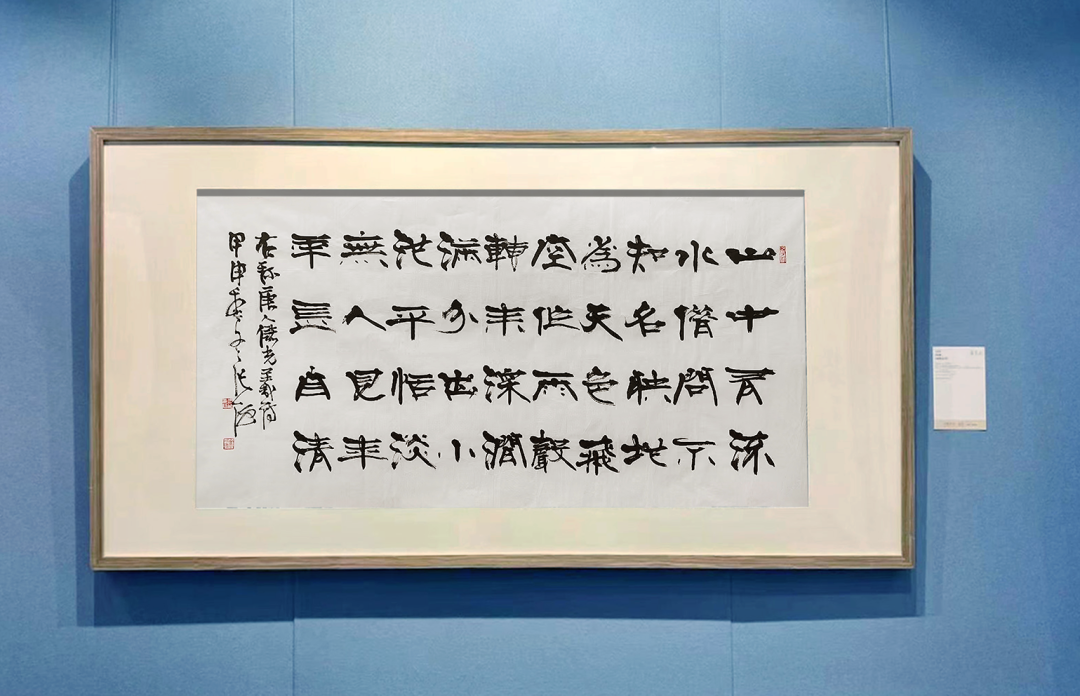 山中有流
水借問不
知名映地
為天色飛
空作雨聲
轉來深澗
滿分出小
池平恬淡
無人見年
年長自清
右録唐人儲光羲詩
甲申張海